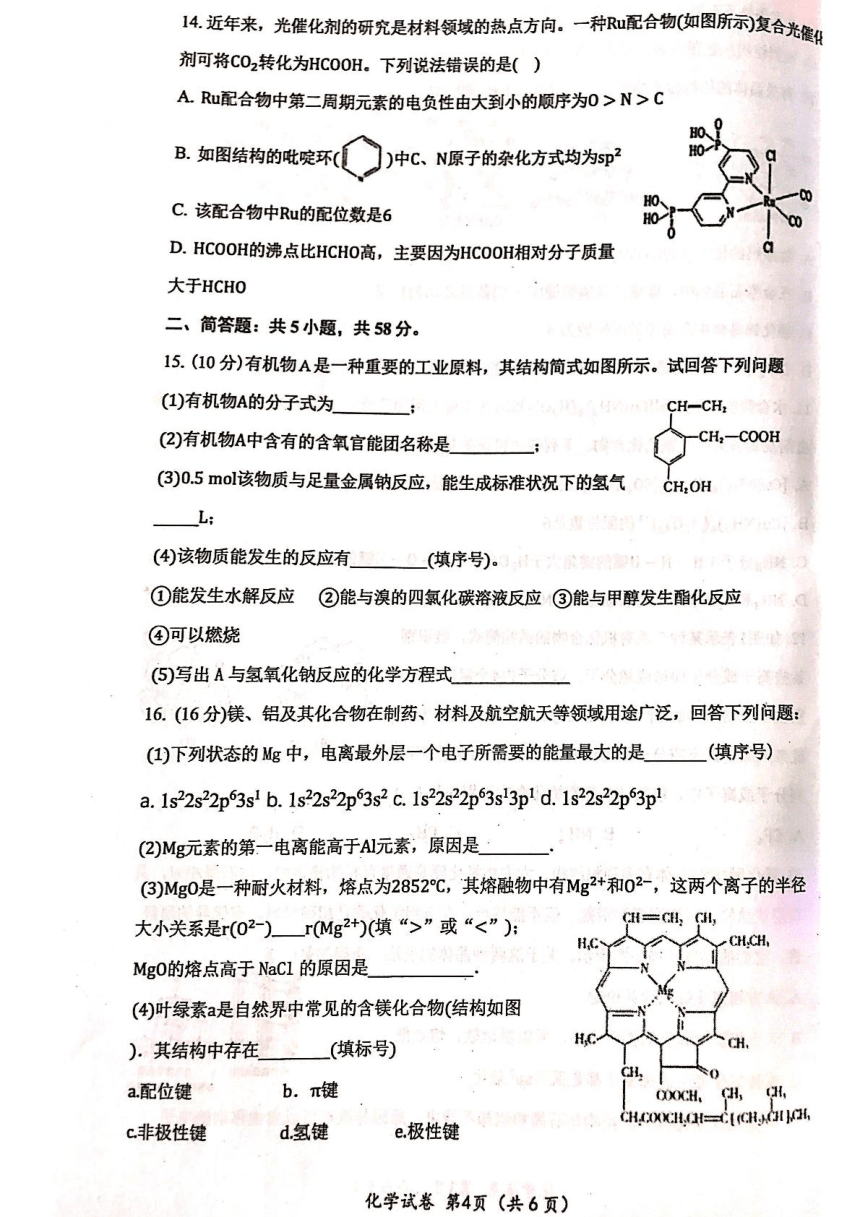 14. 近年来，光催化剂的研究是材料领域的热点方向。一种Ru配合物(如图所示)复合光催化
剂可将CO₂转化为HCOOH。下列说法错误的是(   )
A. Ru配合物中第二周期元素的电负性由大到小的顺序为O＞N＞C
B. 如图结构的吡啶环( )中C、N原子的杂化方式均为sp²
C. 该配合物中Ru的配位数是6
D. HCOOH的沸点比HCHO高，主要因为HCOOH相对分子质量
大于HCHO
HO
HO
P
O
Cl
N
Ru
CO
CO
N
HO
HO
P
O
Cl
二、简答题：共5小题，共58分。
15. (10分)有机物A是一种重要的工业原料，其结构简式如图所示。试回答下列问题
(1)有机物A的分子式为________;
(2)有机物A中含有的含氧官能团名称是________;
(3)0.5 mol该物质与足量金属钠反应，能生成标准状况下的氢气
_____L;
CH=CH₂
CH₂—COOH
CH₂OH
(4)该物质能发生的反应有________(填序号)。
①能发生水解反应 ②能与溴的四氯化碳溶液反应 ③能与甲醇发生酯化反应
④可以燃烧
(5)写出A与氢氧化钠反应的化学方程式____________
16. (16分)镁、铝及其化合物在制药、材料及航空航天等领域用途广泛，回答下列问题:
(1)下列状态的Mg中，电离最外层一个电子所需要的能量最大的是_______(填序号)
a. 1s²2s²2p⁶3s¹ b. 1s²2s²2p⁶3s² c. 1s²2s²2p⁶3s¹3p¹ d. 1s²2s²2p⁶3p¹
(2)Mg元素的第一电离能高于Al元素，原因是________.
(3)MgO是一种耐火材料，熔点为2852℃，其熔融物中有Mg²⁺和O²⁻，这两个离子的半径
大小关系是r(O²⁻)____r(Mg²⁺)(填“>”或“<”);
MgO的熔点高于NaCl的原因是___________.
(4)叶绿素a是自然界中常见的含镁化合物(结构如图
). 其结构中存在________(填标号)
a.配位键 b. π键
c.非极性键 d.氢键 e.极性键
CH=CH₂ CH₃
H₃C
CH₂CH₃
N
N
Mg
N
N
H₃C
CH₃
CH₂
O
COOCH₃ CH₃ CH₃
化学试卷 第4页（共6页）